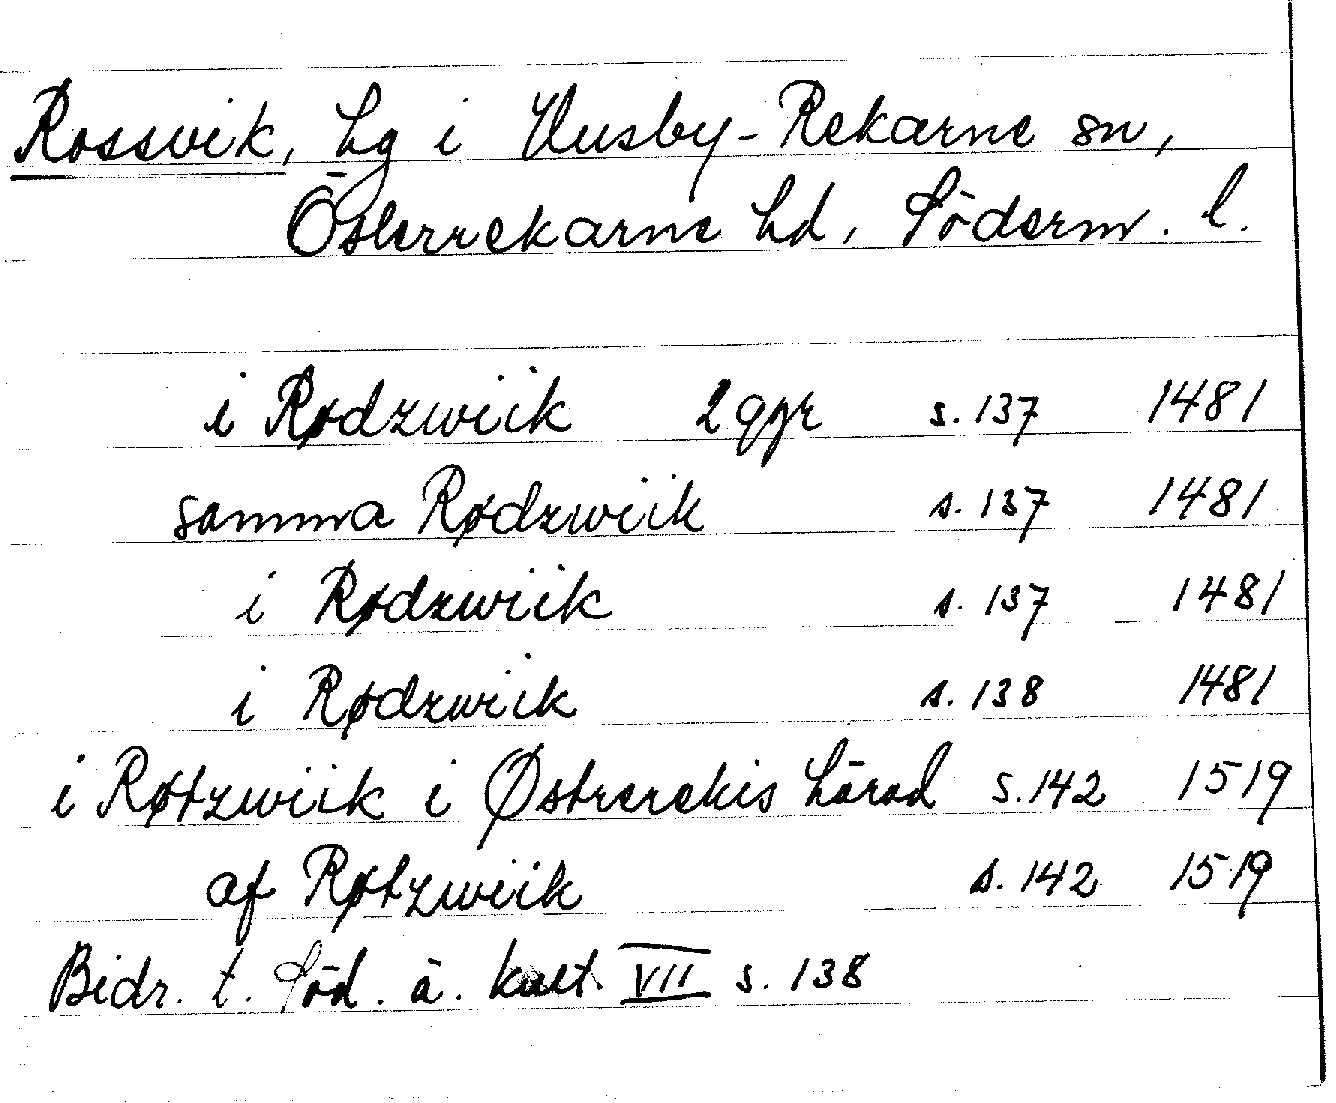 Rossvik, hg i Husby-Rekarne sn,
Österrekarne hd, Söderm. l.
i Rødzwiik 2 ggr s. 137 1481
samma Rødzwiik s. 137 1481
i Rødzwiik s. 137 1481
i Rødzwiik s. 138 1481
i Røtzwiik i Østrerekis härad s. 142 1519
af Røtzwiik s. 142 1519
Bidr. t. Söd. ä. kult. VII s. 138